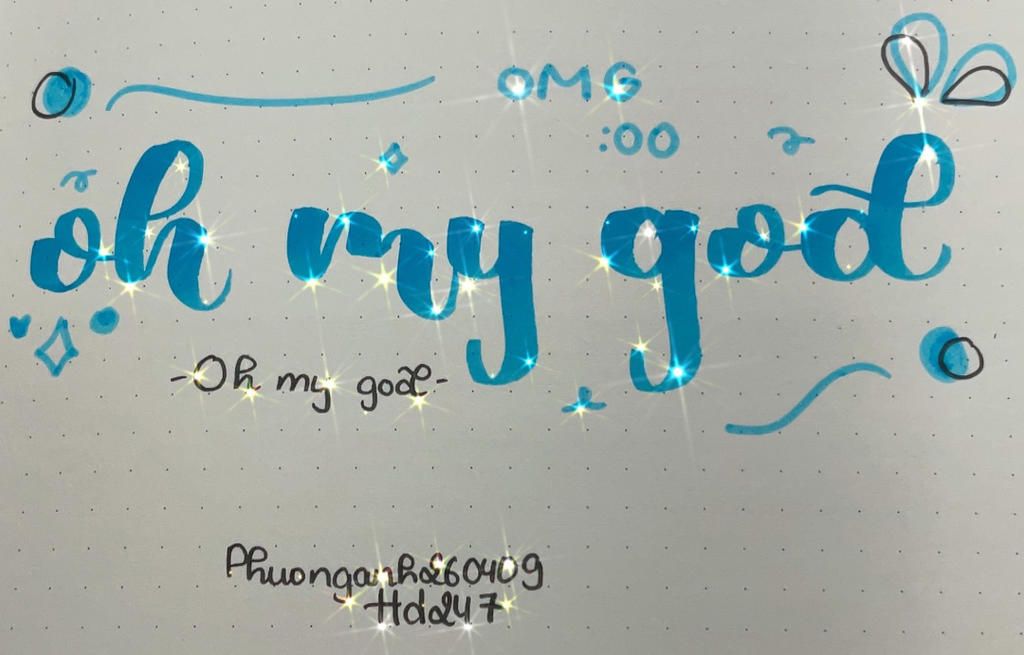 OMG
:00
oh my god
-Oh my god-
Phuonganh260409
Hd247